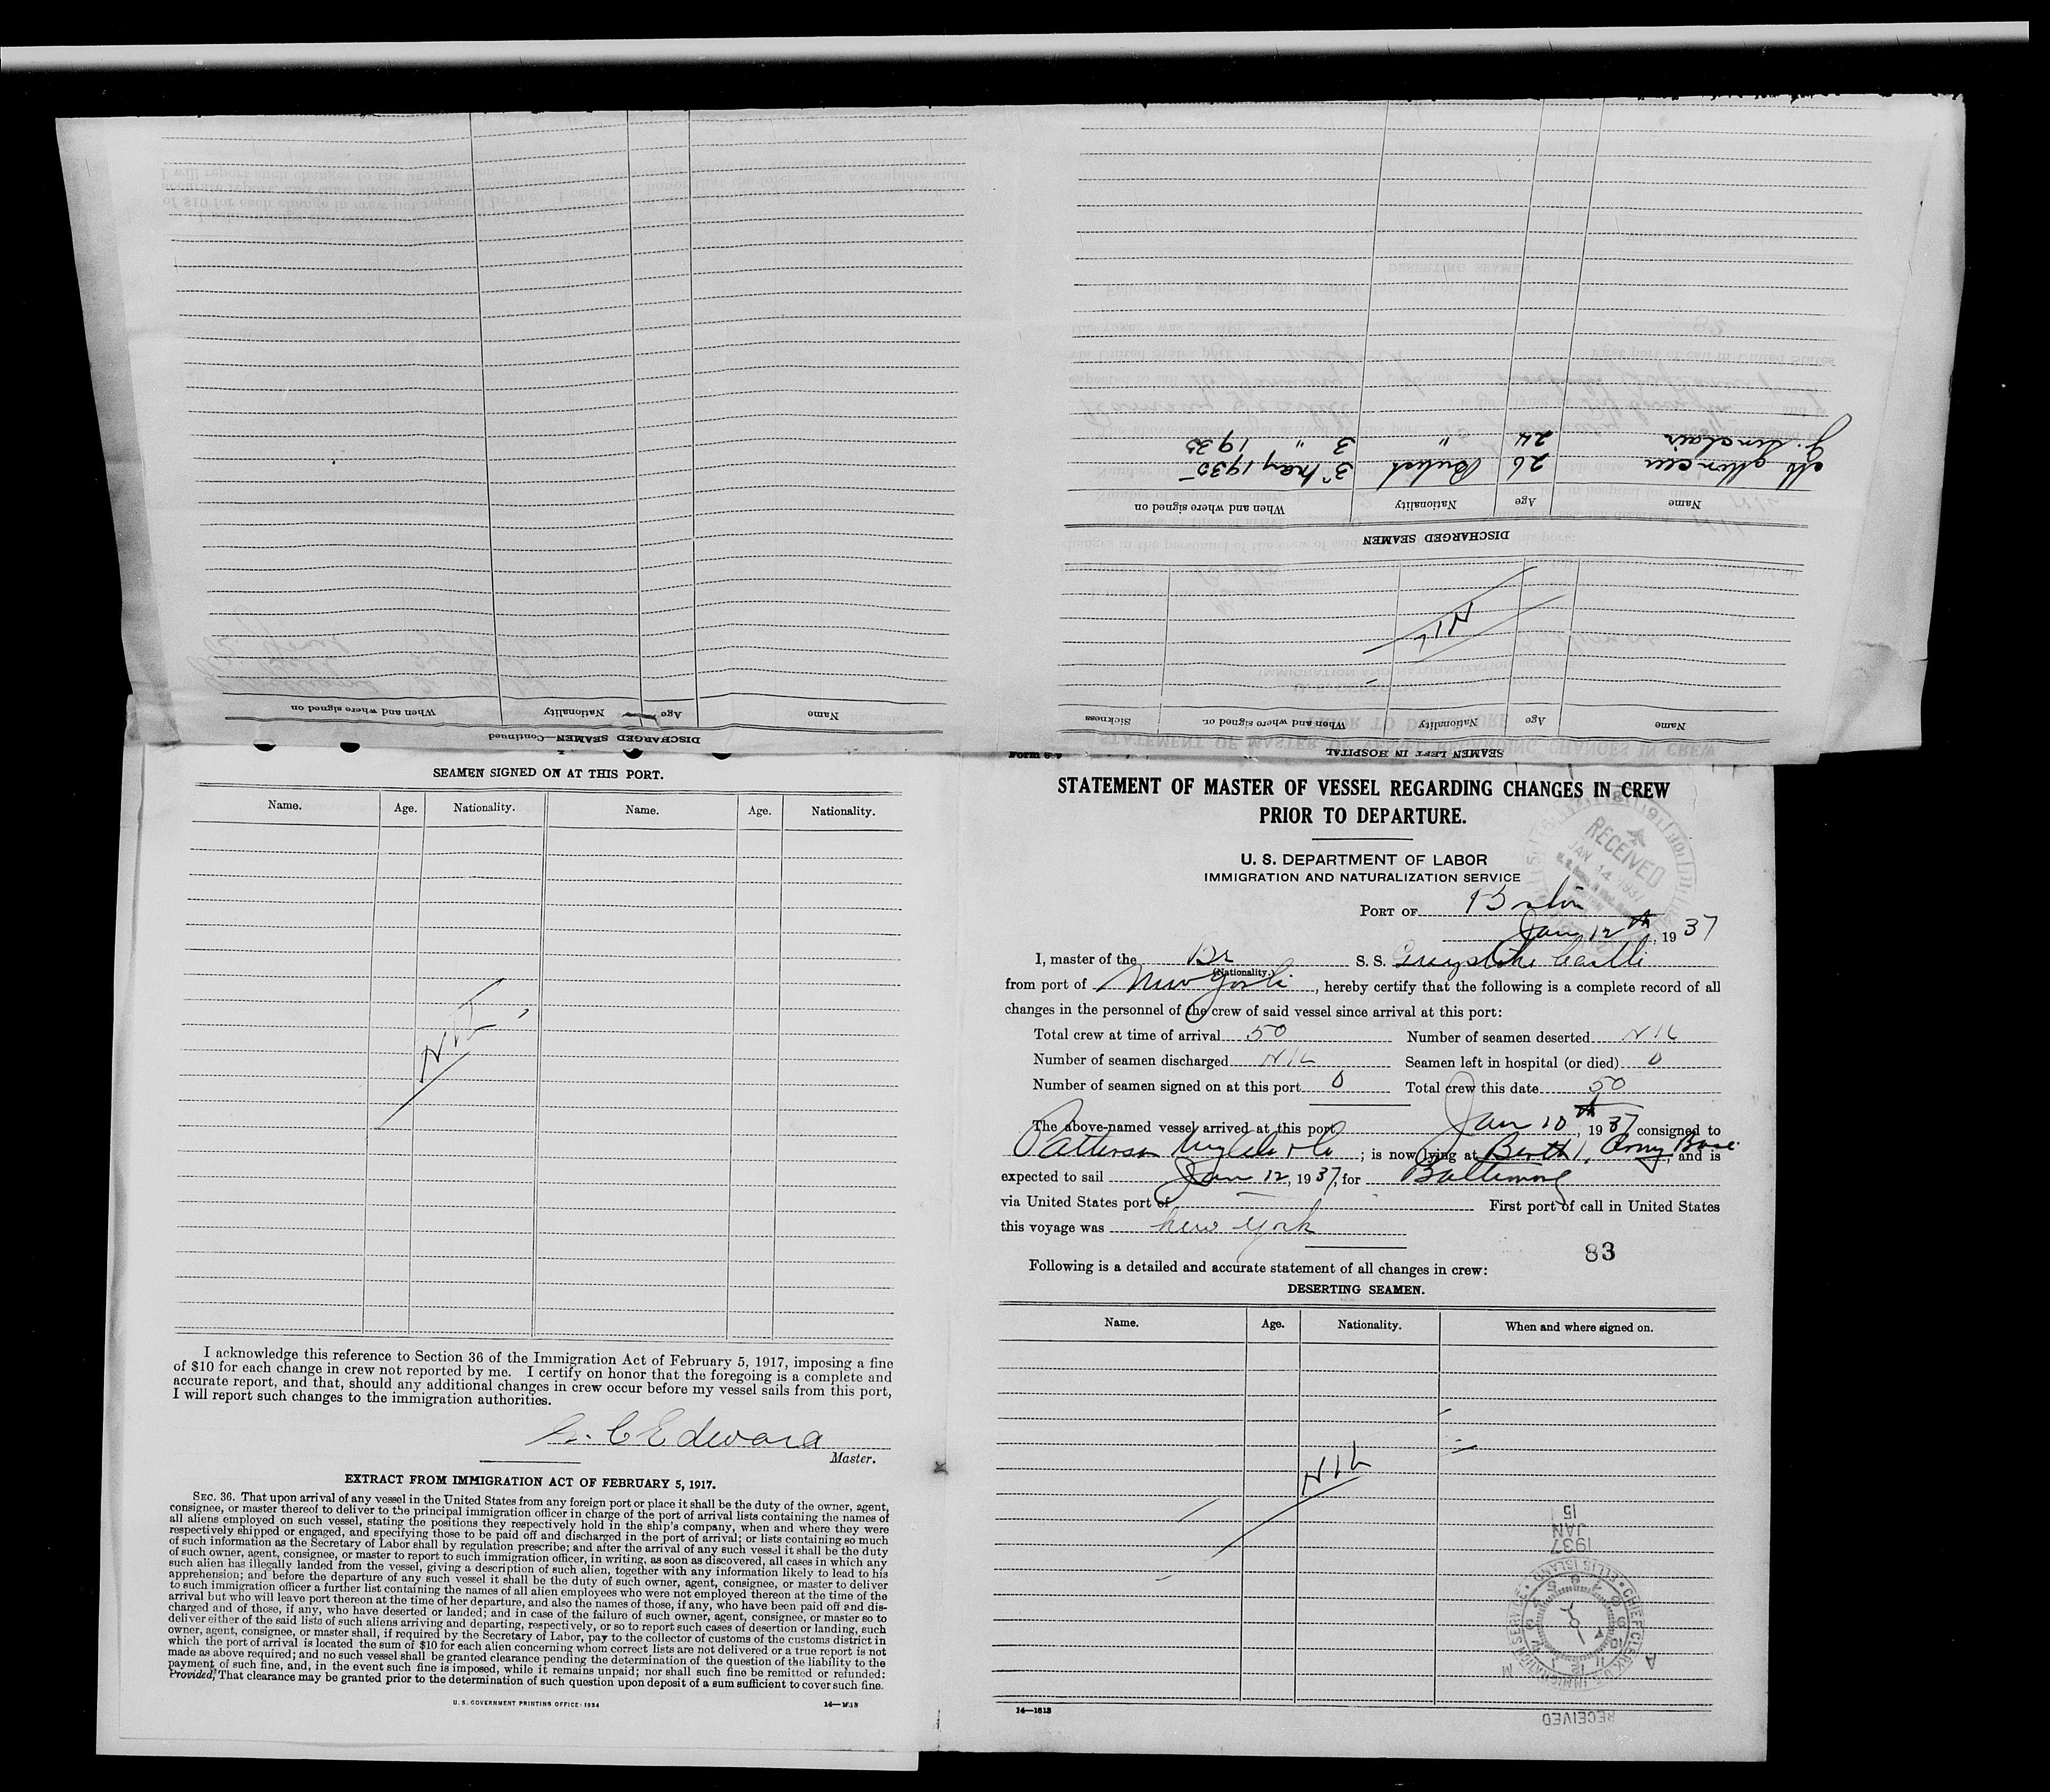 SEAMEN LEFT IN HOSPITAL
Name Age Nationality When and where signed on Sickness
NIL
DISCHARGED SEAMEN
Name Age Nationality When and where signed on
26 British 3rd May 1935
J. Sinclair 24 " 3 " 1935
DISCHARGED SEAMEN—Continued
Name Age Nationality When and where signed on
SEAMEN SIGNED ON AT THIS PORT.
Name. Age. Nationality. Name. Age. Nationality.
NIL
I acknowledge this reference to Section 36 of the Immigration Act of February 5, 1917, imposing a fine
of $10 for each change in crew not reported by me. I certify on honor that the foregoing is a complete and
accurate report, and that, should any additional changes in crew occur before my vessel sails from this port,
I will report such changes to the immigration authorities.
C Edward
Master.
EXTRACT FROM IMMIGRATION ACT OF FEBRUARY 5, 1917.
SEC. 36. That upon arrival of any vessel in the United States from any foreign port or place it shall be the duty of the owner, agent,
consignee, or master thereof to deliver to the principal immigration officer in charge of the port of arrival lists containing the names of
all aliens employed on such vessel, stating the positions they respectively hold in the ship's company, when and where they were
respectively shipped or engaged, and specifying those to be paid off and discharged in the port of arrival; or lists containing so much
of such information as the Secretary of Labor shall by regulation prescribe; and after the arrival of any such vessel it shall be the duty
of such owner, agent, consignee, or master to report to such immigration officer, in writing, as soon as discovered, all cases in which any
such alien has illegally landed from the vessel, giving a description of such alien, together with any information likely to lead to his
apprehension; and before the departure of any such vessel it shall be the duty of such owner, agent, consignee, or master to deliver
to such immigration officer a further list containing the names of all alien employees who were not employed thereon at the time of the
arrival but who will leave port thereon at the time of her departure, and also the names of those, if any, who have been paid off and dis-
charged and of those, if any, who have deserted or landed; and in case of the failure of such owner, agent, consignee, or master so to
deliver either of the said lists of such aliens arriving and departing, respectively, or so to report such cases of desertion or landing, such
owner, agent, consignee, or master shall, if required by the Secretary of Labor, pay to the collector of customs of the customs district in
which the port of arrival is located the sum of $10 for each alien concerning whom correct lists are not delivered or a true report is not
made as above required; and no such vessel shall be granted clearance pending the determination of the question of the liability to the
payment of such fine, and, in the event such fine is imposed, while it remains unpaid; nor shall such fine be remitted or refunded:
Provided, That clearance may be granted prior to the determination of such question upon deposit of a sum sufficient to cover such fine.
U. S. GOVERNMENT PRINTING OFFICE: 1934
STATEMENT OF MASTER OF VESSEL REGARDING CHANGES IN CREW
PRIOR TO DEPARTURE.
U. S. DEPARTMENT OF LABOR
IMMIGRATION AND NATURALIZATION SERVICE
RECEIVED
JAN 14 1937
PORT OF Boston
Jan 12th, 1937
I, master of the Br S. S. Greystoke Castle
(Nationality.)
from port of New York, hereby certify that the following is a complete record of all
changes in the personnel of the crew of said vessel since arrival at this port:
Total crew at time of arrival 50 Number of seamen deserted NIL
Number of seamen discharged NIL Seamen left in hospital (or died) 0
Number of seamen signed on at this port 0 Total crew this date 50
The above-named vessel arrived at this port Jan 10th, 1937 consigned to
Patterson Wylde & Co; is now lying at Berth 1, Army Base, and is
expected to sail Jan 12, 1937, for Baltimore
via United States port of First port of call in United States
this voyage was New York
83
Following is a detailed and accurate statement of all changes in crew:
DESERTING SEAMEN.
Name. Age. Nationality. When and where signed on.
NIL
14—1613
RECEIVED
CHIEF CLERK U.S. IMMIGRATION SERVICE • ELLIS ISLAND
A M
1937
JAN
15